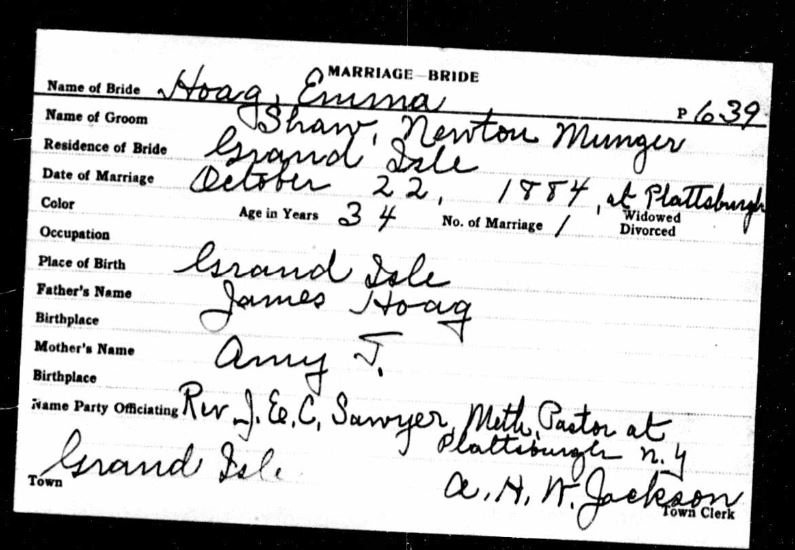 MARRIAGE—BRIDE
Name of Bride Hoag, Emma P 639
Name of Groom Shaw, Newton Munger
Residence of Bride Grand Isle
Date of Marriage October 22, 1884, at Plattsburgh
Color Age in Years 34 No. of Marriage 1 Widowed
Divorced
Occupation
Place of Birth Grand Isle
Father's Name James Hoag
Birthplace
Mother's Name Amy T.
Birthplace
Name Party Officiating Rev J. E. C. Sawyer, Meth. Pastor at
Plattsburgh N.Y
Town Grand Isle
A. H. W. Jackson
Town Clerk